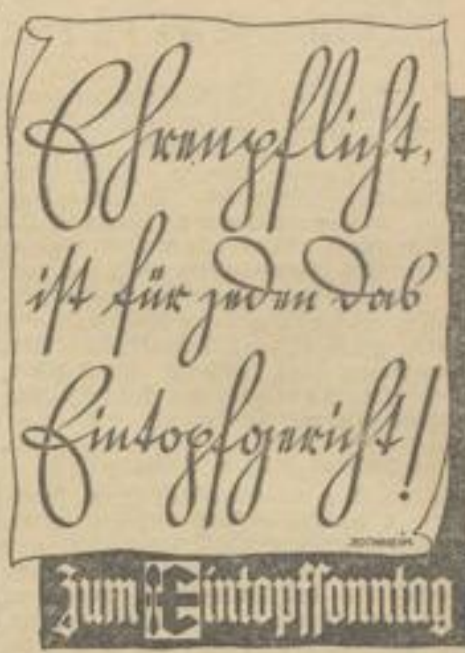 Ehrenpflicht,
ist für jeden das
Eintopfgericht!
Zum Eintopfsonntag